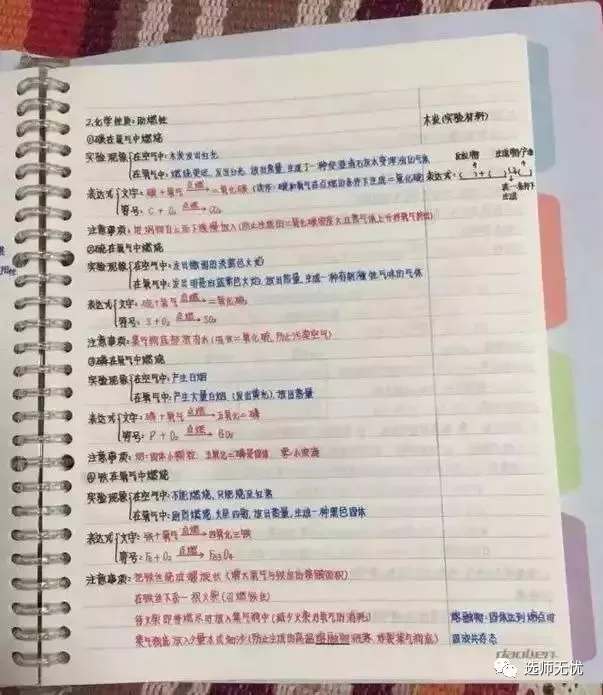 2.化学性质:助燃性
木炭(实验材料)
①碳在氧气中燃烧
实验现象 在空气中:木炭发出红光
在氧气中:燃烧更旺,发出白光,放出热量,生成了一种使澄清石灰水变浑浊的气体
表达式 文字:碳+氧气 点燃→ 二氧化碳 (读作:碳和氧气在点燃的条件下生成二氧化碳)
表达式:
符号: C + O₂ 点燃→ CO₂
注意事项:把坩埚钳自上而下缓慢放入
②硫在氧气中燃烧
实验现象 在空气中:发出微弱的淡蓝色火焰
在氧气中:发出明亮的蓝紫色火焰,放出热量,生成一种有刺激性气味的气体
表达式 文字:硫+氧气 点燃→ 二氧化硫
符号: S + O₂ 点燃→ SO₂
注意事项:集气瓶底部放有水(吸收二氧化硫,防止污染空气)
③磷在氧气中燃烧
实验现象 在空气中:产生白烟
在氧气中:产生大量白烟(发出黄光),放出热量
表达式 文字:磷+氧气 点燃→ 五氧化二磷
符号: P + O₂ 点燃→
注意事项:烟:固体小颗粒 五氧化二磷是固体 雾:小液滴
④铁在氧气中燃烧
实验现象 在空气中:不能燃烧,只能烧至红热
在氧气中:剧烈燃烧,火星四射,放出热量,生成一种黑色固体
表达式 文字:铁+氧气 点燃→ 四氧化三铁
符号: Fe + O₂ 点燃→ Fe3O4
注意事项:把铁丝绕成螺旋状(增大氧气与铁丝的接触面积)
在铁丝下系一根火柴(引燃铁丝)
待火柴即将燃尽时放入集气瓶中(减少火柴对氧气的消耗)
熔融物:固体达到熔点时
集气瓶底放入少量水或细沙(防止生成的高温熔融物溅落,炸裂集气瓶底)
固液共存态
daolien
选师无忧